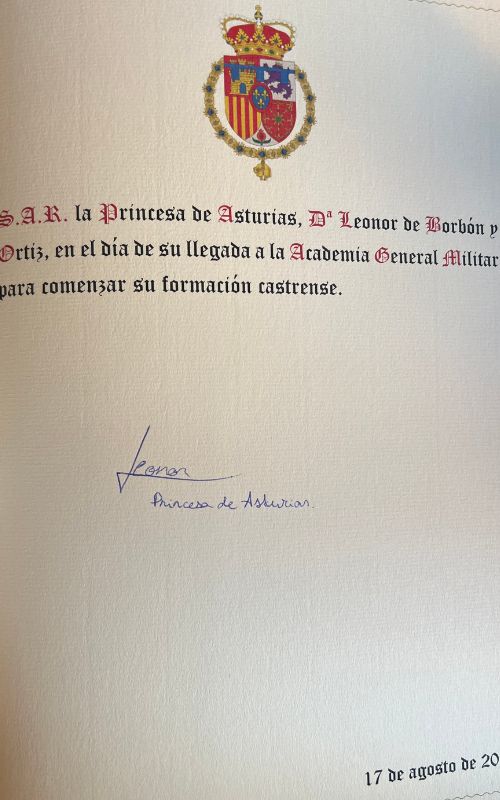 S.A.R. la Princesa de Asturias, Dª Leonor de Borbón y
Ortiz, en el día de su llegada a la Academia General Militar
para comenzar su formación castrense.
Leonor
Princesa de Asturias.
17 de agosto de 20